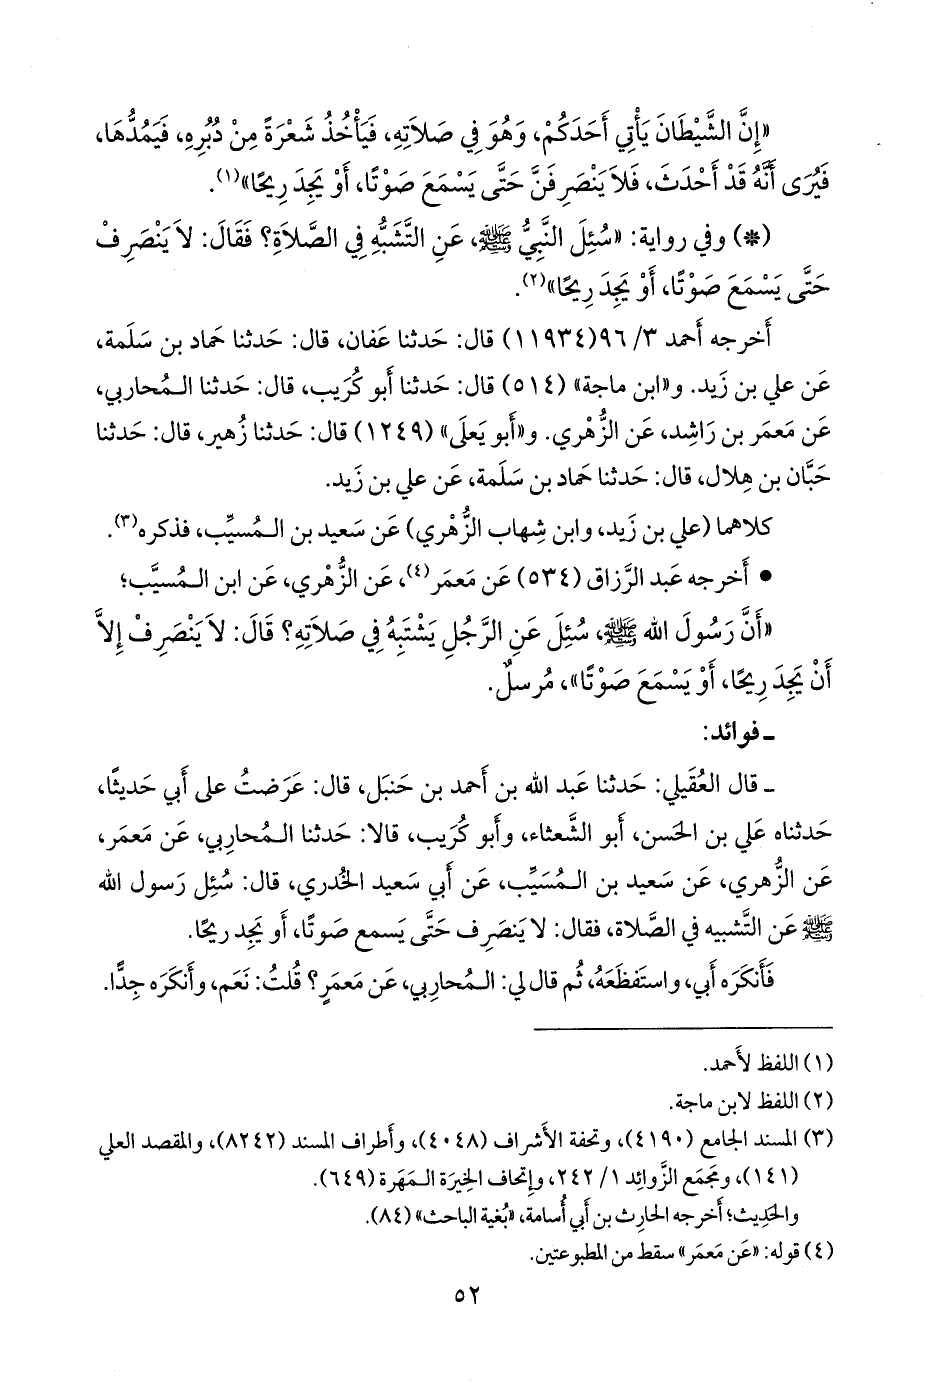 «إِنَّ الشَّيْطَانَ يَأْتِي أَحَدَكُمْ، وَهُوَ فِي صَلاَتِهِ، فَيَأْخُذُ شَعْرَةً مِنْ دُبُرِهِ، فَيَمُدُّهَا،
فَيُرَى أَنَّهُ قَدْ أَحْدَثَ، فَلاَ يَنْصَرِفَنَّ حَتَّى يَسْمَعَ صَوْتًا، أَوْ يَجِدَ رِيحًا»(١).
(*) وفي رواية: «سُئِلَ النَّبِيُّ ﷺ، عَنِ التَّشَبُّهِ فِي الصَّلاَةِ؟ فَقَالَ: لاَ يَنْصَرِفْ
حَتَّى يَسْمَعَ صَوْتًا، أَوْ يَجِدَ رِيحًا»(٢).
أَخرجه أَحمد ٣/ ٩٦(١١٩٣٤) قال: حَدثنا عَفان، قال: حَدثنا حَماد بن سَلَمة،
عَن علي بن زَيد. و«ابن ماجة» (٥١٤) قال: حَدثنا أَبو كُرَيب، قال: حَدثنا الـمُحاربي،
عَن مَعمَر بن رَاشِد، عَن الزُّهْري. و«أَبو يَعلَى» (١٢٤٩) قال: حَدثنا زُهير، قال: حَدثنا
حَبَّان بن هِلال، قال: حَدثنا حَماد بن سَلَمة، عَن علي بن زَيد.
كلاهما (علي بن زَيد، وابن شِهاب الزُّهْري) عَن سَعيد بن الـمُسيِّب، فذكره(٣).
● أَخرجه عَبد الرَّزاق (٥٣٤) عَن مَعمَر(٤)، عَن الزُّهْري، عَن ابن الـمُسيَّب؛
«أَنَّ رَسُولَ الله ﷺ، سُئِلَ عَنِ الرَّجُلِ يَشْتَبِهُ فِي صَلاَتِهِ؟ قَالَ: لاَ يَنْصَرِفْ إِلاَّ
أَنْ يَجِدَ رِيحًا، أَوْ يَسْمَعَ صَوْتًا»، مُرسلٌ.
ـ فوائد:
ـ قال العُقَيلي: حَدثنا عَبد الله بن أَحمد بن حَنبَل، قال: عَرَضتُ على أَبي حَديثًا،
حَدثناه عَلي بن الحَسن، أَبو الشَّعثاء، وأَبو كُرَيب، قالا: حَدثنا الـمُحاربي، عَن مَعمَر،
عَن الزُّهري، عَن سَعيد بن الـمُسَيِّب، عَن أَبي سَعيد الخُدري، قال: سُئِل رَسول الله
ﷺ عَن التَّشبيه في الصَّلاة، فقال: لا يَنصَرِف حَتَّى يَسمع صَوتًا، أَو يَجِد ريحًا.
فَأَنكَرَه أَبي، واستَفظَعَهُ، ثُم قال لي: الـمُحاربي، عَن مَعمَرٍ؟ قُلتُ: نَعَم، وأَنكَرَه جِدًّا.
(١) اللفظ لأَحمد.
(٢) اللفظ لابن ماجة.
(٣) المسند الجامع (٤١٩٠)، وتحفة الأَشراف (٤٠٤٨)، وأَطراف المسند (٨٢٤٢)، والمقصد العلي
(١٤١)، ومَجمَع الزَّوائِد ١/ ٢٤٢، وإِتحاف الخِيرَة الـمَهَرة (٦٤٩).
والحَدِيث؛ أَخرجه الحارِث بن أَبي أُسامة، «بُغية الباحث» (٨٤).
(٤) قوله: «عَن مَعمَر» سقط من المطبوعتين.
٥٢